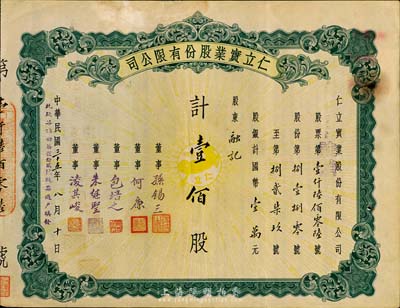 仁立實業股份有限公司
仁立實業股份有限公司
股票第壹仟陸佰零陸號
股份第捌壹捌零號
至第捌貳柒玖號
股銀計國幣壹萬元
股東 融記
計壹佰股
董事 孫錫三
董事 何廉
董事 包培之
董事 朱繼聖
董事 凌其峻
中華民國三十五年八月十日